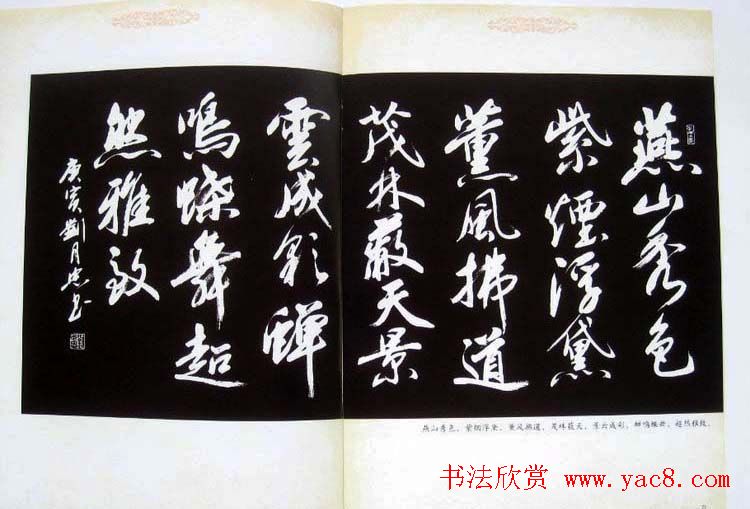 燕山秀色
紫煙浮黛
薰風拂道
茂林蔽天景
雲成彩蟬
鳴蝶舞超
然雅致
庚寅劉月忠书
燕山秀色，紫烟浮黛，薰风拂道，茂林蔽天，景云成彩，蝉鸣蝶舞，超然雅致。
书法欣赏 www.yac8.com